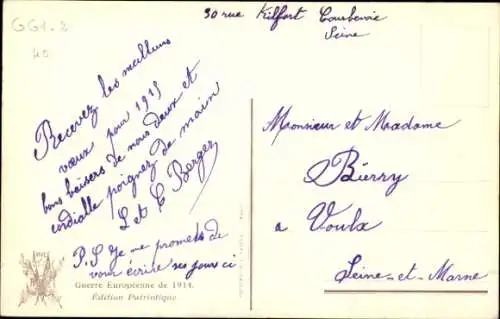 GG1-2
40
30 rue Kilfort Courbevoie
Seine
Recevez les meilleurs
vœux pour 1915
bons baisers de nous deux et
cordialle poignez de main
L et E Berger
P.S Je me promets de
vour écrire ses jours ci
Guerre Européenne de 1914.
Édition Patriotique
Monsieur et Madame
Bierry
a Voulx
Seine-et-Marne